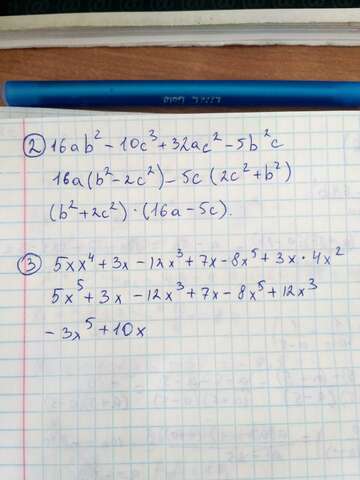 ② 16ab² - 10c³ + 32ac² - 5b²c
16a(b² - 2c²) - 5c (2c² + b²)
(b² + 2c²) · (16a - 5c).
③ 5xx⁴ + 3x - 12x³ + 7x - 8x⁵ + 3x · 4x²
5x⁵ + 3x - 12x³ + 7x - 8x⁵ + 12x³
- 3x⁵ + 10x